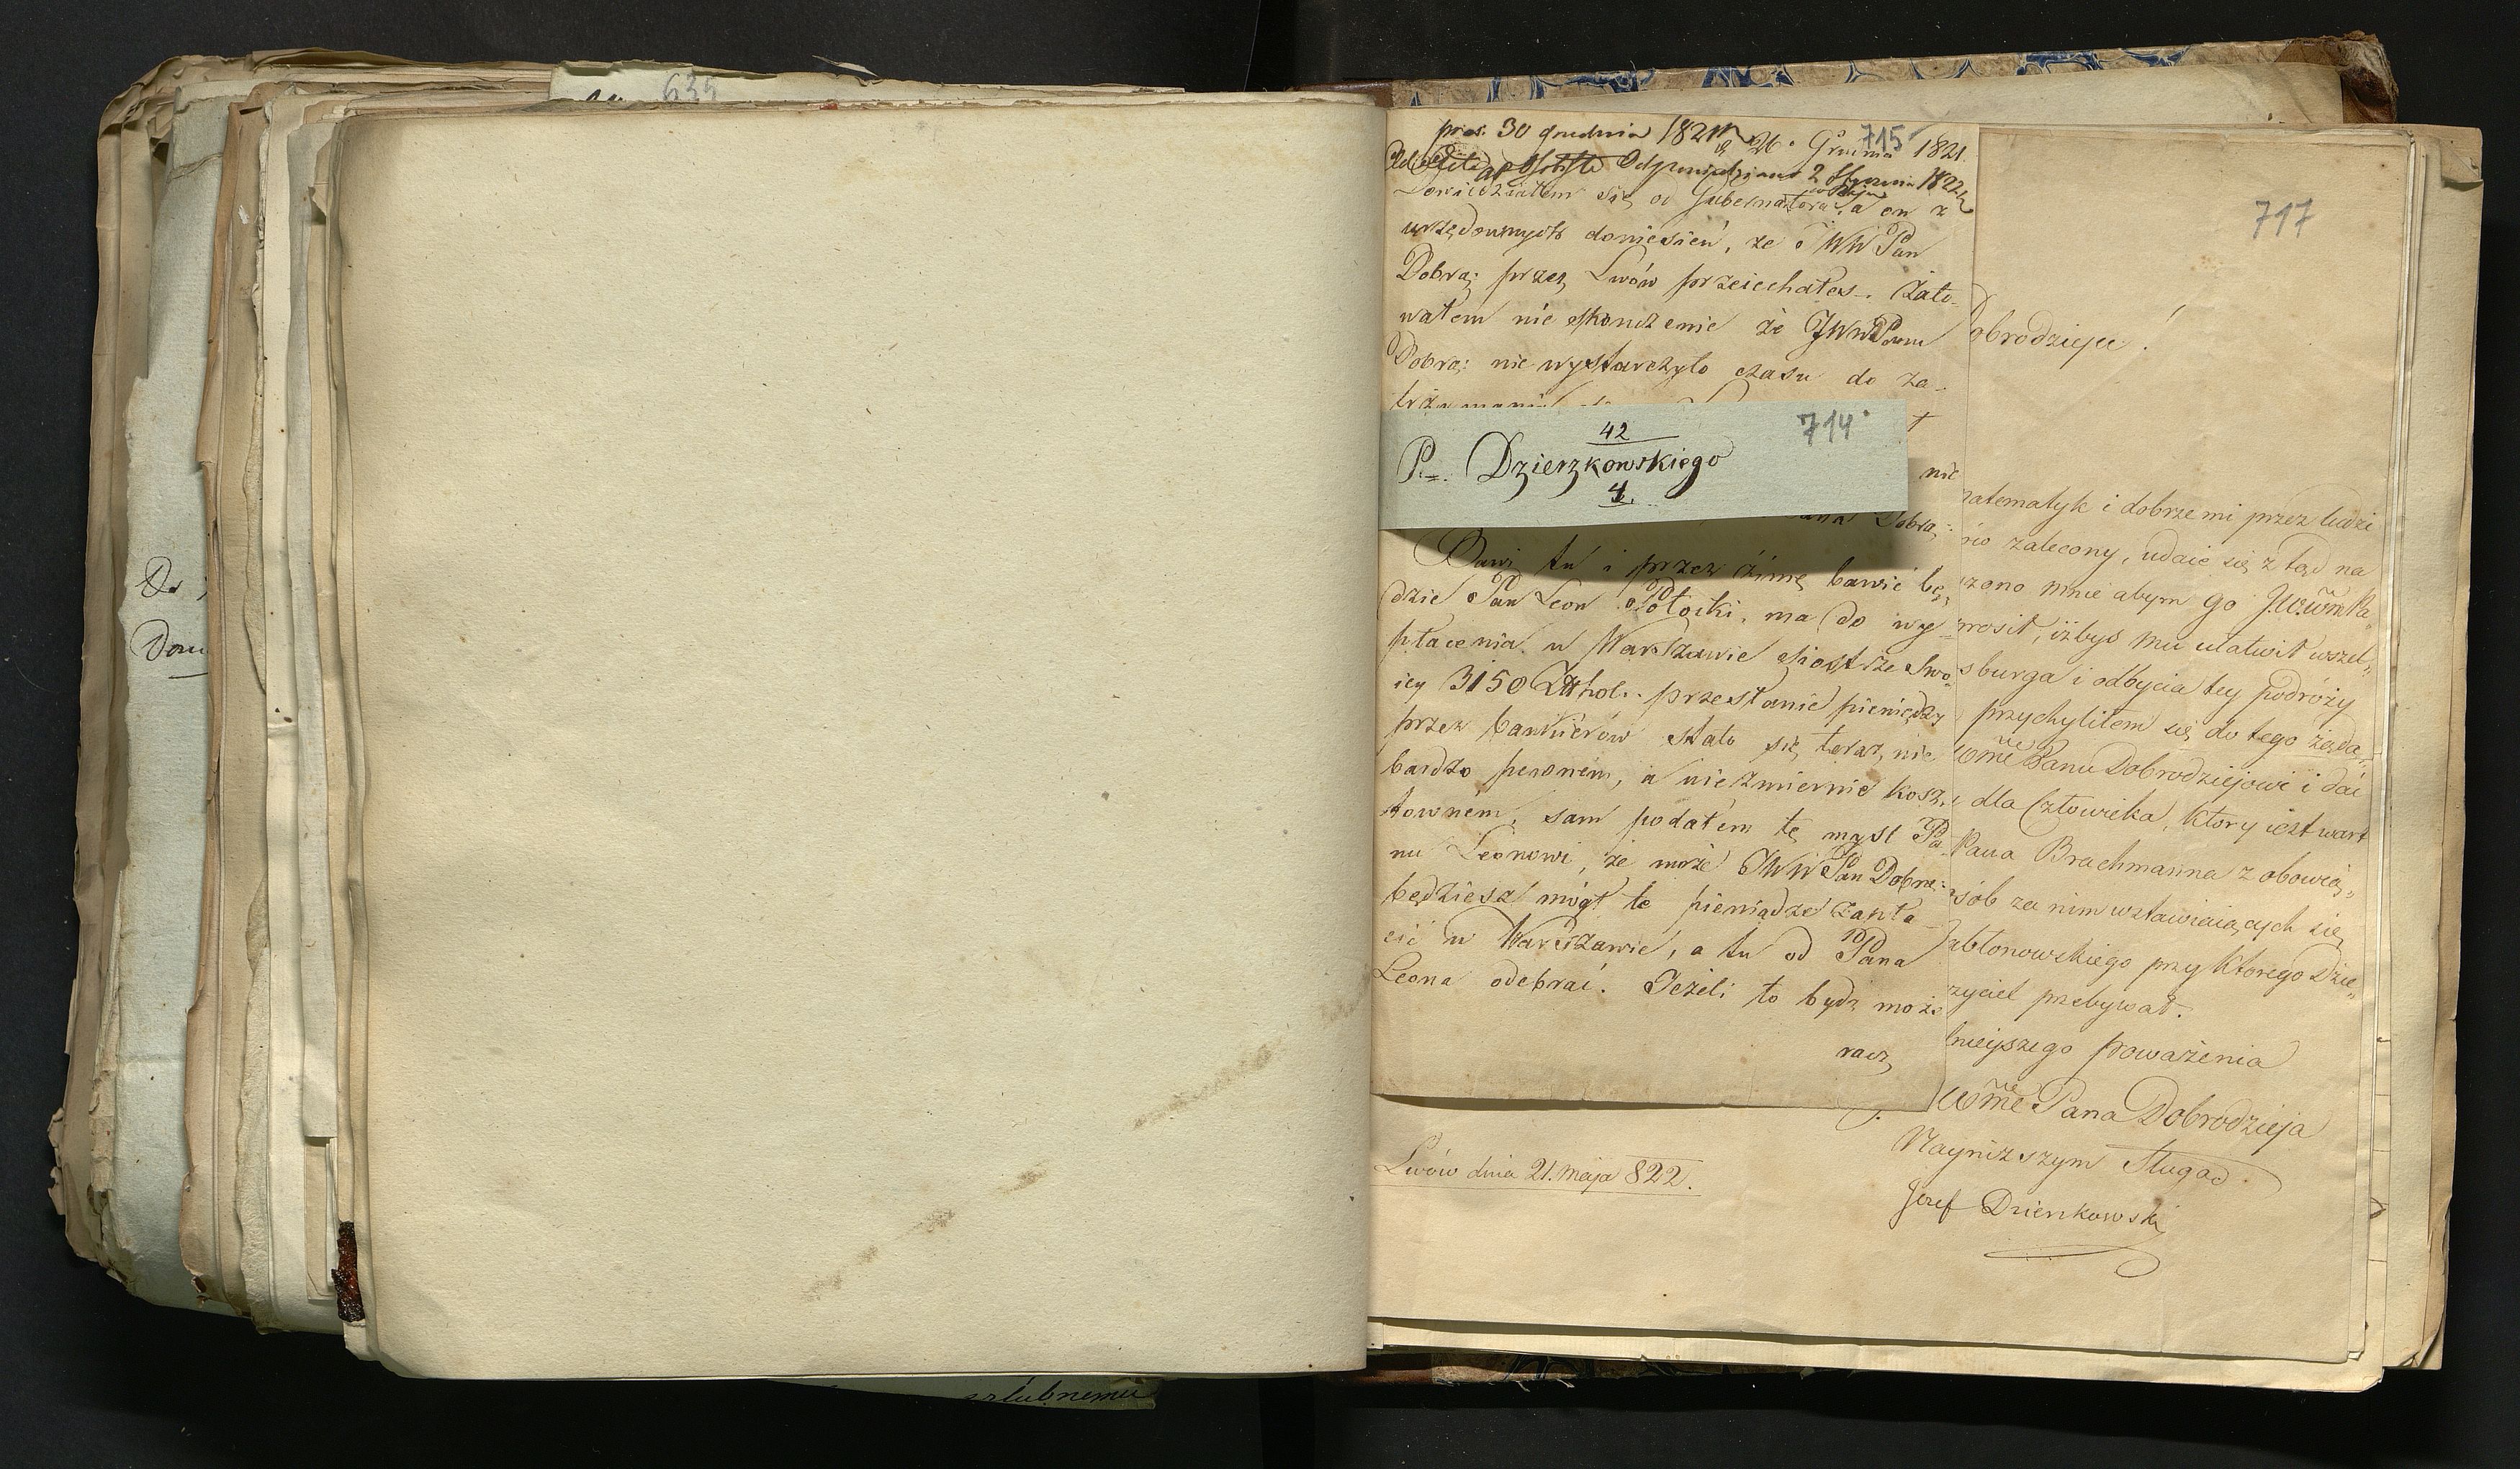 635
Do
Dom
szlubnemu
pres. 30 grudnia 1821
715
26. Grudnia 1821.
Odpowiedziano 2 Stycznia 1822
Dowiedziałem się od Gubernatora, a on z
urzędownych doniesień, że JWW Pan
Dobra: przez Lwów przeiechałeś. Żało-
wałem nieskończenie że JWWPanu
Dobra: nie wystarczyło czasu do za-
714
42
P. Dzierzkowskiego
4.
nie
Dobra:
Bawi tu i przez zimę bawić bę-
dzie Pan Leon Potocki, ma do wy-
płacenia w Warszawie siostrze swo-
iey 3150 # hol. przesłanie pieniędzy
przez bankierów stało się teraz nie
bardzo pewnem, a niezmiernie kosz-
townem, sam podałem tę myśl Pa-
nu Leonowi, że może JWW Pan Dobra:
będziesz mógł te pieniądze zapła-
cić w Warszawie, a tu od Pana
Leona odebrać. Jeżeli to bydź może
racz
717
obrodzieju!
matematyk i dobrze mi przez ludzi
zalecony, udaie się z tąd na
zono mnie abym go J.W.Wm Pa„
prosił, iżbyś mu ułatwił wszel„
sburga i odbycia tey podróży
przychyliłem się do tego żąda„
Wme Panu Dobrodziejowi i dać
dla Człowieka, który iest wart
Pana Brachmanna z obowią„
sób za nim wstawiaiących się
abłonowskiego przy którego Dzie„
zyciel przebywał.
lnieyszego poważenia
Wme Pana Dobrodzieja
Nayniższym Sługą
Jozef Dzierzkowski
Lwów dnia 21. maja 822.